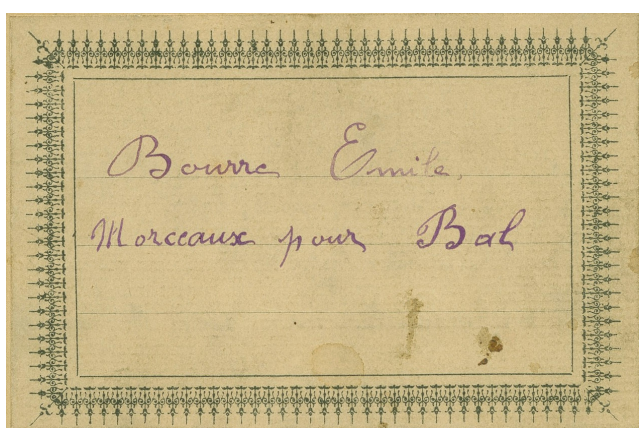 Bourre Emile
Morceaux pour Bal